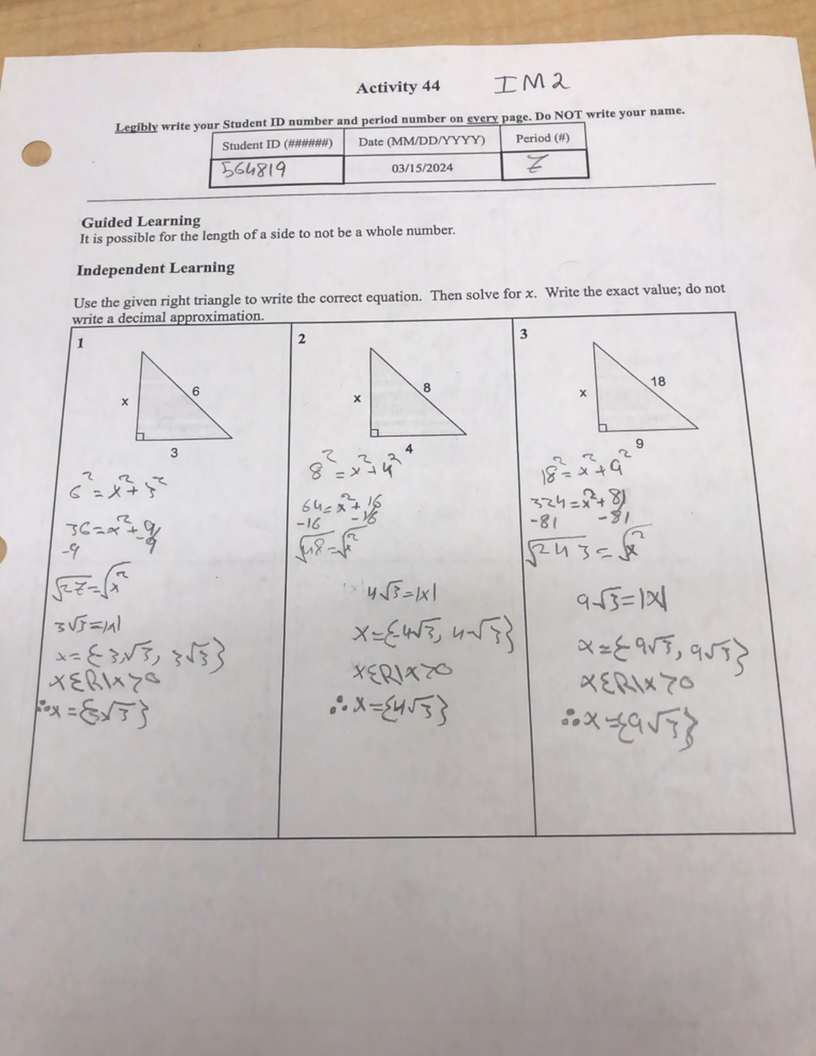 Activity 44 IM2
Legibly write your Student ID number and period number on every page. Do NOT write your name.
Student ID (######) Date (MM/DD/YYYY) Period (#)
564819 03/15/2024 Z
Guided Learning
It is possible for the length of a side to not be a whole number.
Independent Learning
Use the given right triangle to write the correct equation. Then solve for x. Write the exact value; do not
write a decimal approximation.
1
x
6
3
6² = x² + 3²
36 = x² + 9
-9 -9
√27 = √x²
3√3 = |x|
x = {3√3, 3√3}
x∈R|x>0
∴x = {3√3}
2
x
8
4
8² = x² + 4²
64 = x² + 16
-16 -16
√48 = √x²
4√3 = |x|
x = {4√3, 4√3}
x∈R|x>0
∴x = {4√3}
3
x
18
9
18² = x² + 9²
324 = x² + 81
-81 -81
√243 = √x²
9√3 = |x|
x = {9√3, 9√3}
x∈R|x>0
∴x = {9√3}